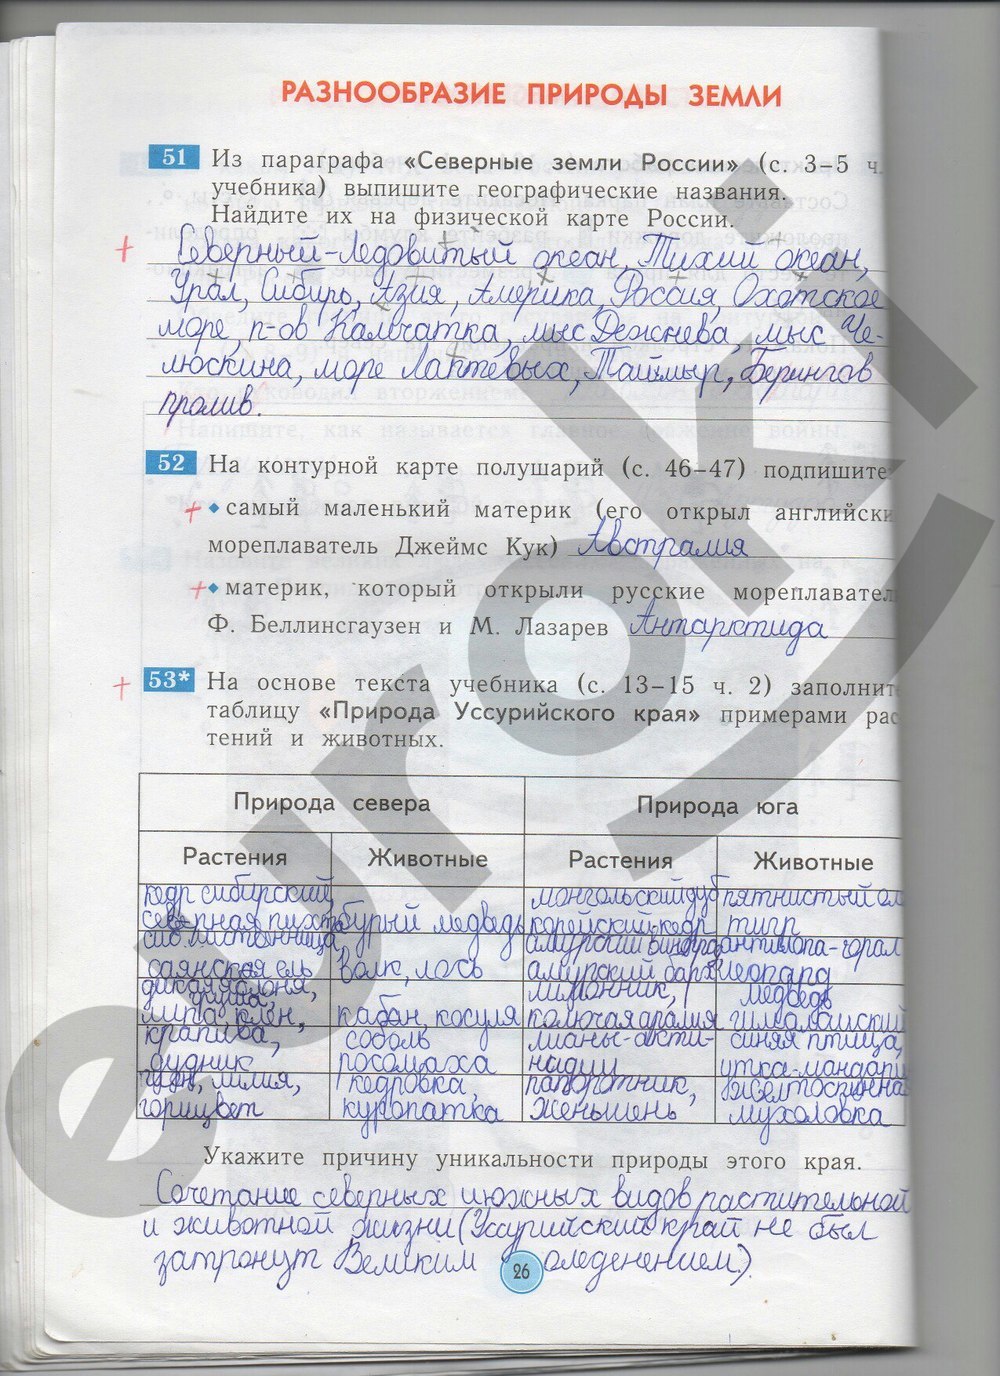 РАЗНООБРАЗИЕ ПРИРОДЫ ЗЕМЛИ
51 Из параграфа «Северные земли России» (с. 3–5 ч.
учебника) выпишите географические названия.
Найдите их на физической карте России.
Северный-Ледовитый океан, Тихий океан,
Урал, Сибирь, Азия, Америка, Россия, Охотское
море, п-ов Камчатка, мыс Дежнева, мыс Че-
люскина, море Лаптевых, Таймыр, Берингов
пролив.
52 На контурной карте полушарий (с. 46–47) подпишите:
самый маленький материк (его открыл английски
мореплаватель Джеймс Кук) Австралия
материк, который открыли русские мореплавател
Ф. Беллинсгаузен и М. Лазарев Антарктида
53* На основе текста учебника (с. 13–15 ч. 2) заполните
таблицу «Природа Уссурийского края» примерами рас
тений и животных.
Природа севера Природа юга
Растения Животные Растения Животные
кедр сибирский, монгольский дуб пятнистый ол
северная пихта бурый медведь корейский кедр тигр
сиб. лиственница амурский виноград антилопа-горал
саянская ель волк, лось амурский барх леопард
дикая яблоня, лимонник, медведь
липа, клён, кабан, косуля колючая аралия гималайский
крапива, соболь лианы-акти- синяя птица,
дудник росомаха нидии утка-мандари
лилия, кедровка, папоротник, желтоспинная
горицвет куропатка женьшень мухоловка
Укажите причину уникальности природы этого края.
Сочетание северных и южных видов растительной
и животной жизни (Уссурийский край не был
затронут Великим оледенением).
26
euroki